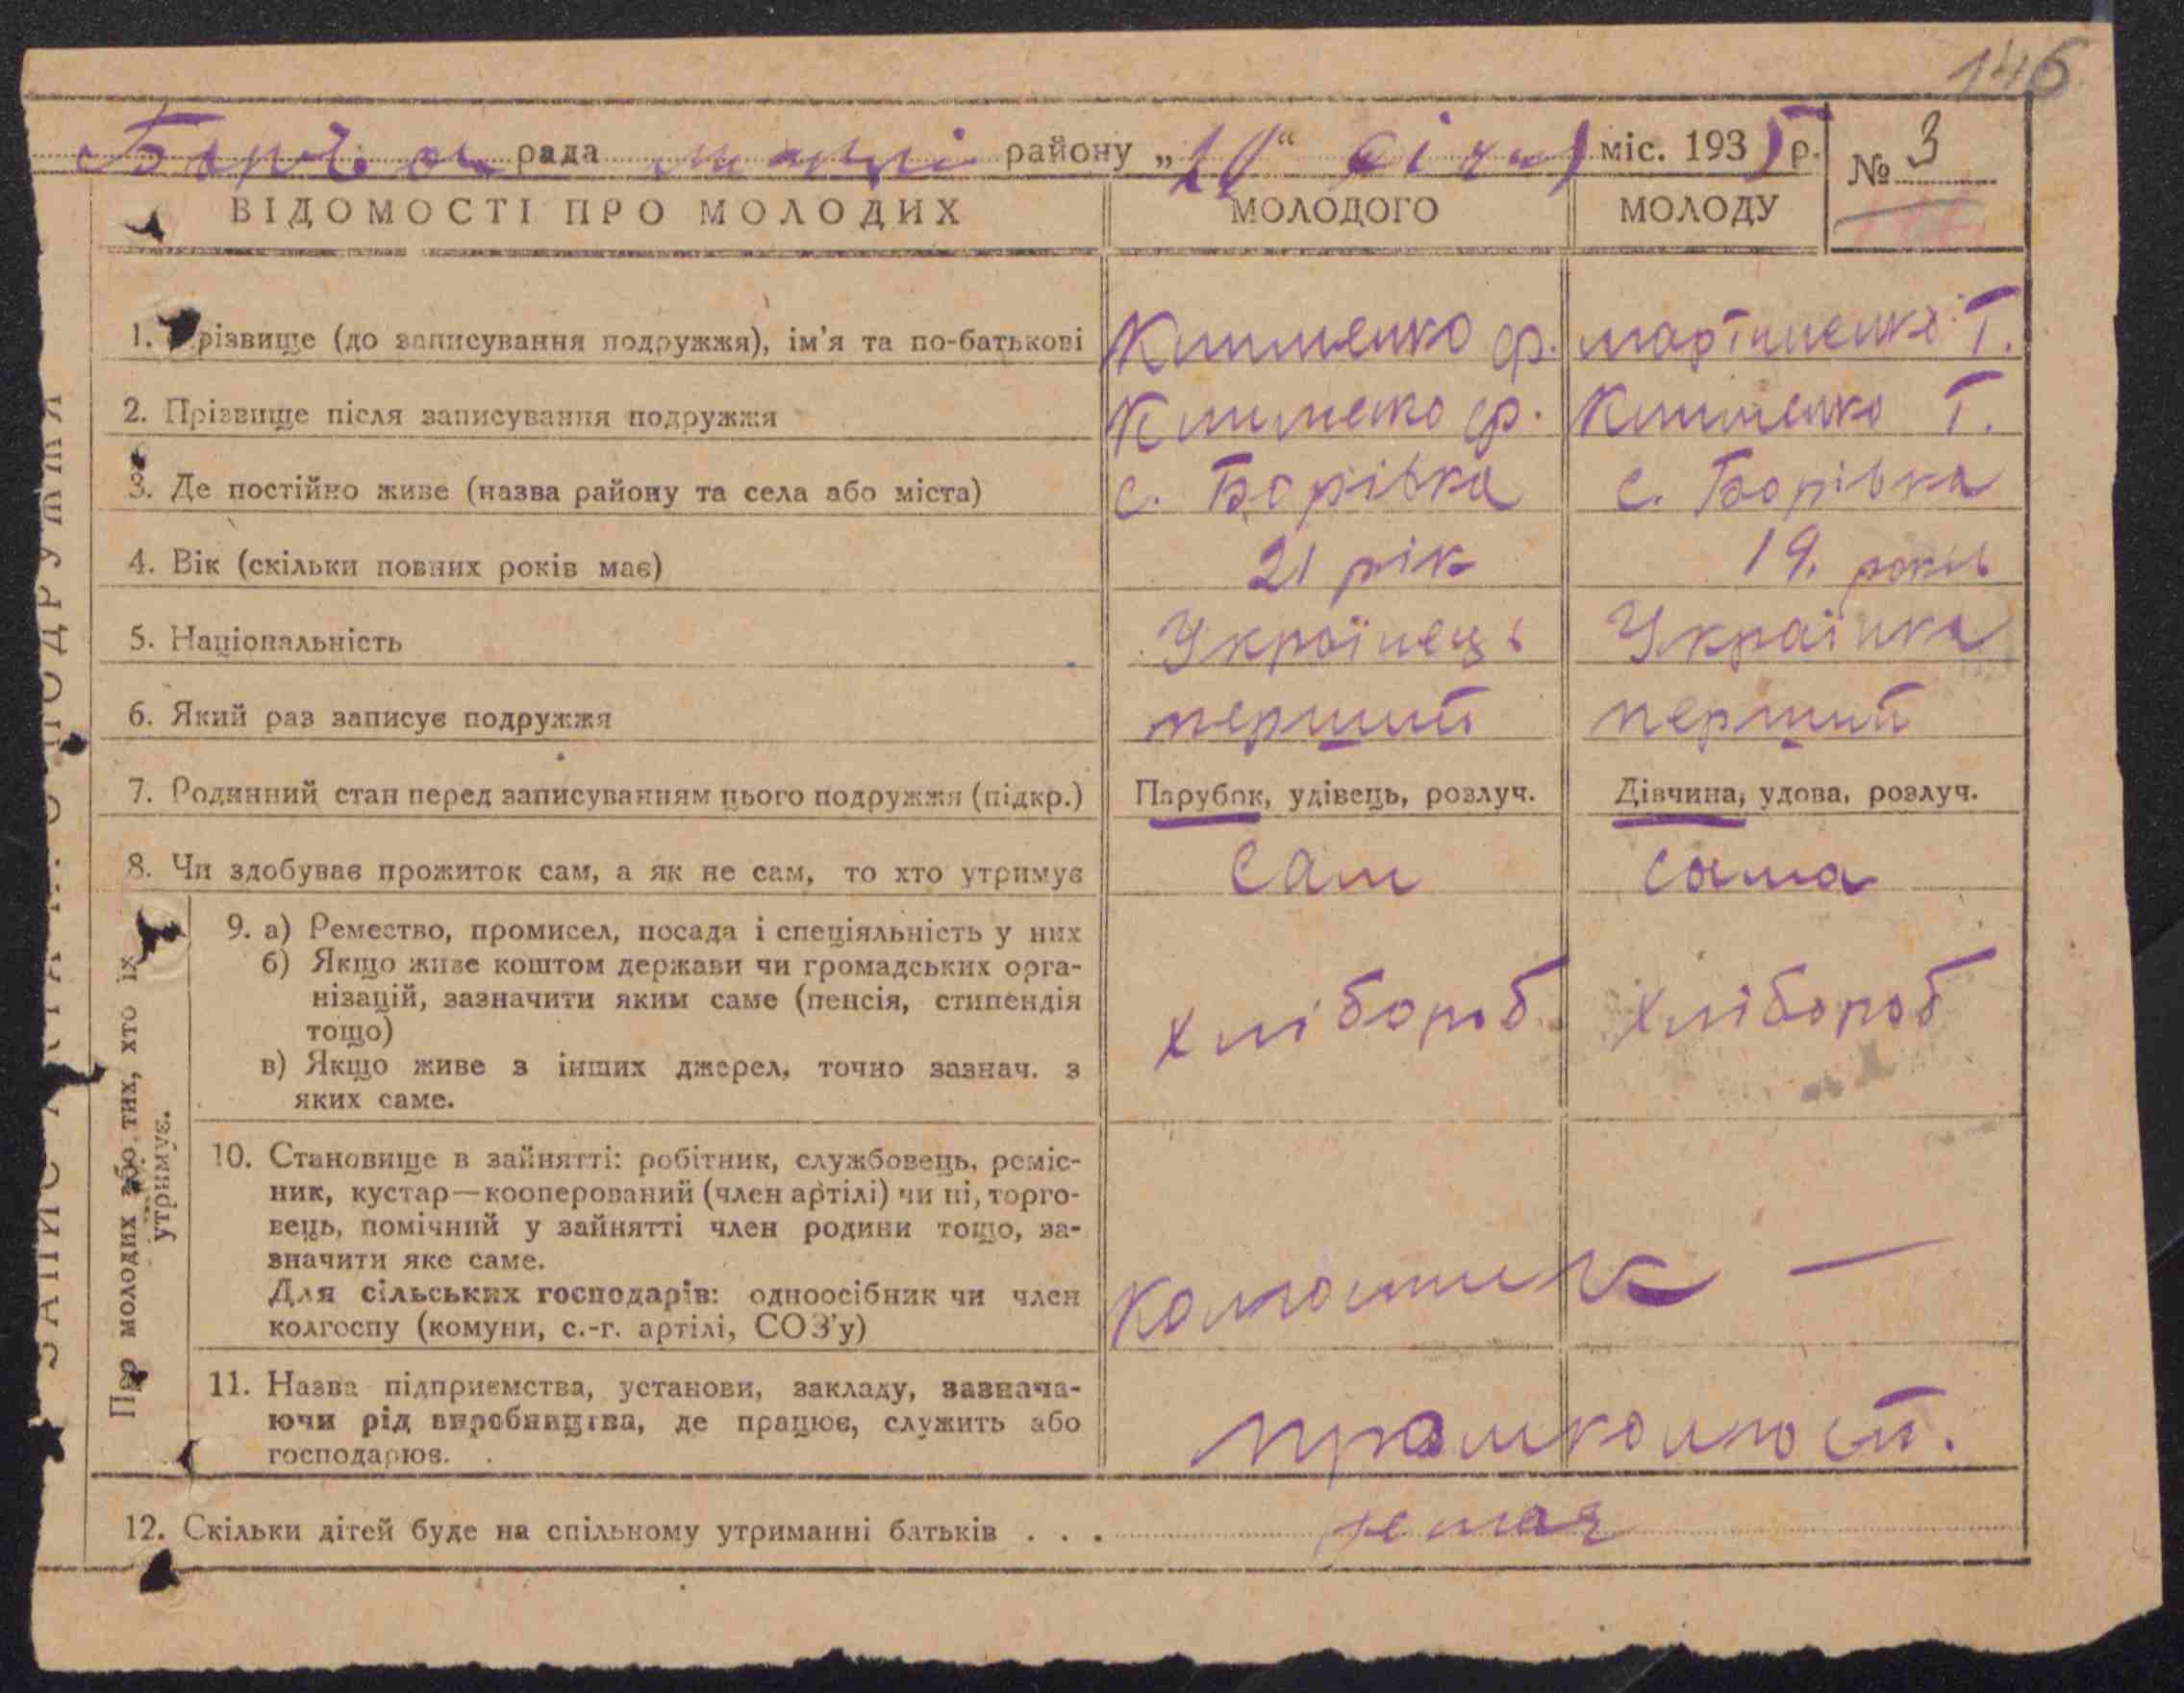 146
рада району „10“ січня міс. 1935 р. № 3
ВІДОМОСТІ ПРО МОЛОДИХ МОЛОДОГО МОЛОДУ
1. Прізвище (до записування подружжя), ім'я та по-батькові Клименко Ф. Мартиненко Т.
2. Прізвище після записування подружжя Клименко Ф. Клименко Т.
3. Де постійно живе (назва району та села або міста) с. Борівка с. Борівка
4. Вік (скільки повних років має) 21 рік 19. років
5. Національність Українець Українка
6. Який раз записує подружжя перший перший
7. Родинний стан перед записуванням цього подружжя (підкр.) Парубок, удівець, розлуч. Дівчина, удова, розлуч.
8. Чи здобуває прожиток сам, а як не сам, то хто утримує сам сама
Про молодих або тих, хто їх
утримує.
9. а) Ремество, промисел, посада і спеціяльність у них
б) Якщо живе коштом держави чи громадських орга-
нізацій, зазначити яким саме (пенсія, стипендія
тощо)
в) Якщо живе з інших джерел, точно зазнач. з
яких саме.
хлібороб хлібороб
10. Становище в зайнятті: робітник, службовець, реміс-
ник, кустар—кооперований (член артілі) чи ні, торго-
вець, помічний у зайнятті член родини тощо, за-
значити яке саме.
Для сільських господарів: одноосібник чи член
колгоспу (комуни, с.-г. артілі, СОЗ'у)
колгосник —
11. Назва підприємства, установи, закладу, зазнача-
ючи рід виробництва, де працює, служить або
господарює.
12. Скільки дітей буде на спільному утриманні батьків . . . немає